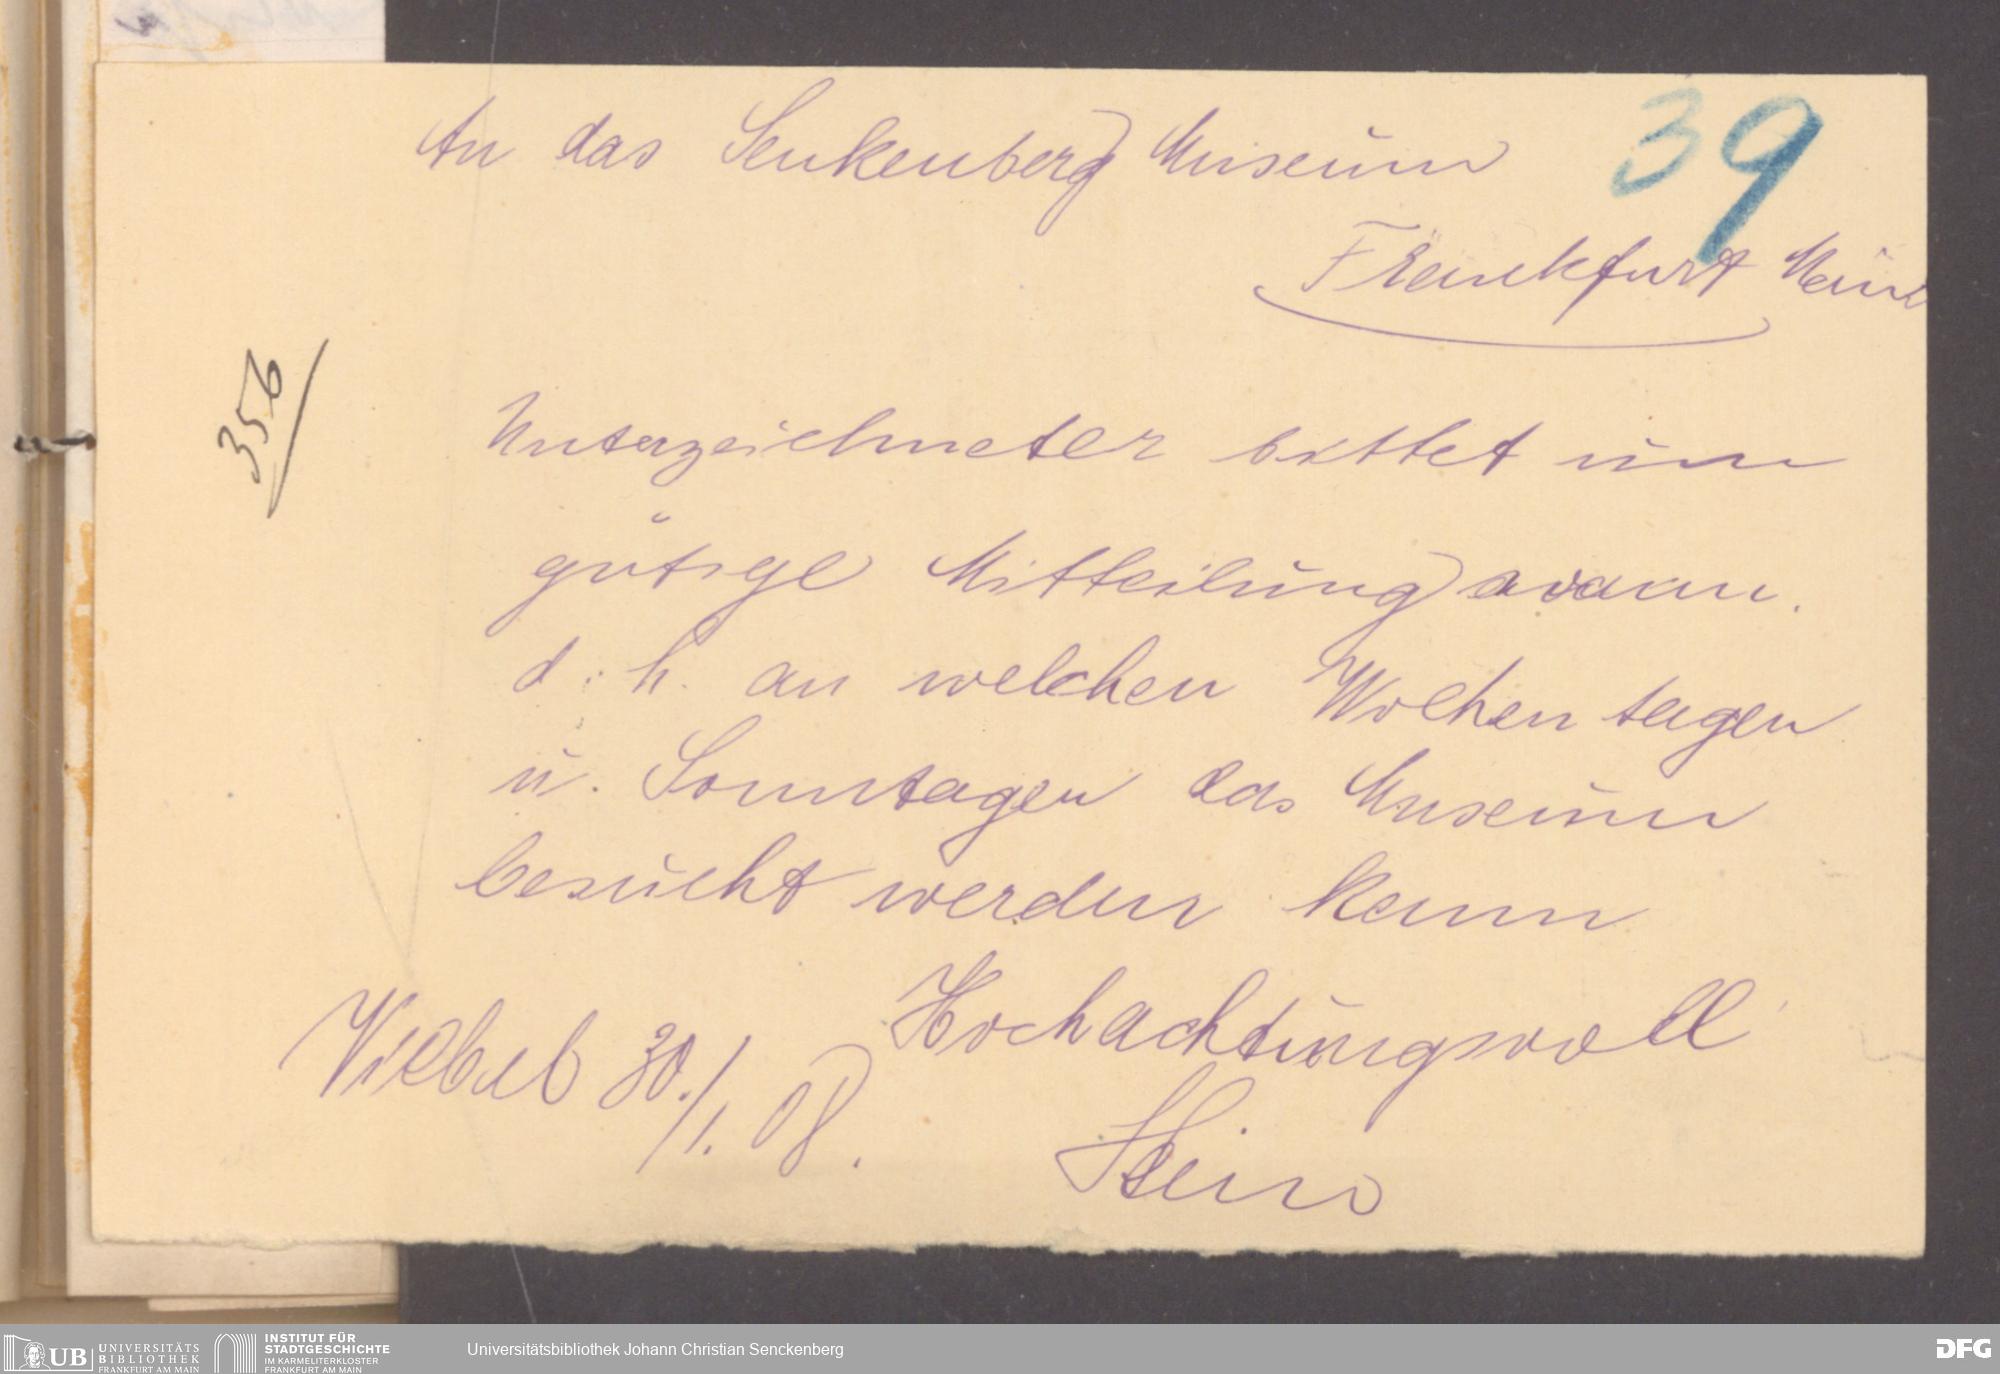 39
An das Senkenberg Museum
Frankfurt Main
356
Unterzeichneter bittet um
gütige Mitteilung wann.
d. h. an welchen Wochentagen
u. Sonntagen das Museum
besucht werden kann
Hochachtungsvoll
Vilbel 30./1. 08.
UB UNIVERSITÄTS
BIBLIOTHEK
FRANKFURT AM MAIN
INSTITUT FÜR
STADTGESCHICHTE
IM KARMELITERKLOSTER
FRANKFURT AM MAIN
Universitätsbibliothek Johann Christian Senckenberg
DFG